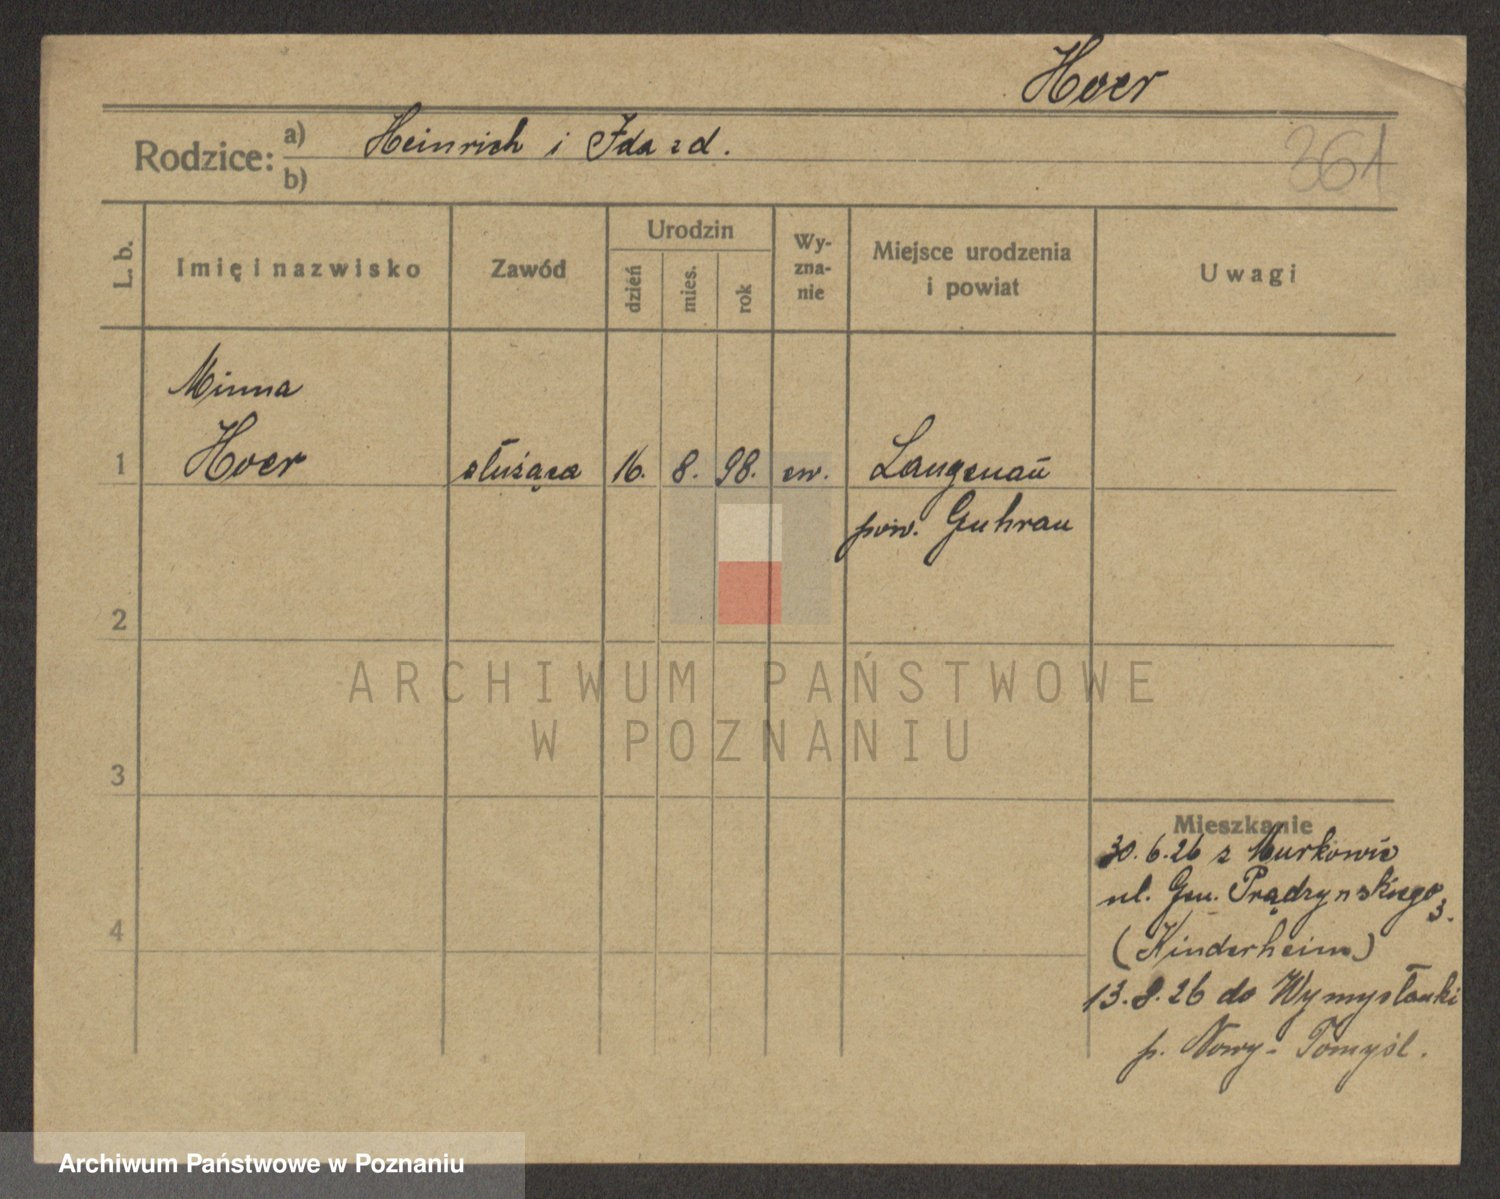 Hoer
Rodzice: a) Heinrich i Ida zd.
b)
361
L. b.
Imię i nazwisko
Zawód
Urodzin
dzień
mies.
rok
Wy-
zna-
nie
Miejsce urodzenia
i powiat
Uwagi
Minna
1 Hoer służąca 16. 8. 98. ew. Langenaŭ
pow. Guhrau
2
ARCHIWUM PAŃSTWOWE
W POZNANIU
3
Mieszkanie
30.6.26 z Murkowic
ul. Gen. Prądzynskiego 3.
4
(Kinderheim)
13.8.26 do Wymysłanki
p. Nowy-Tomyśl.
Archiwum Państwowe w Poznaniu